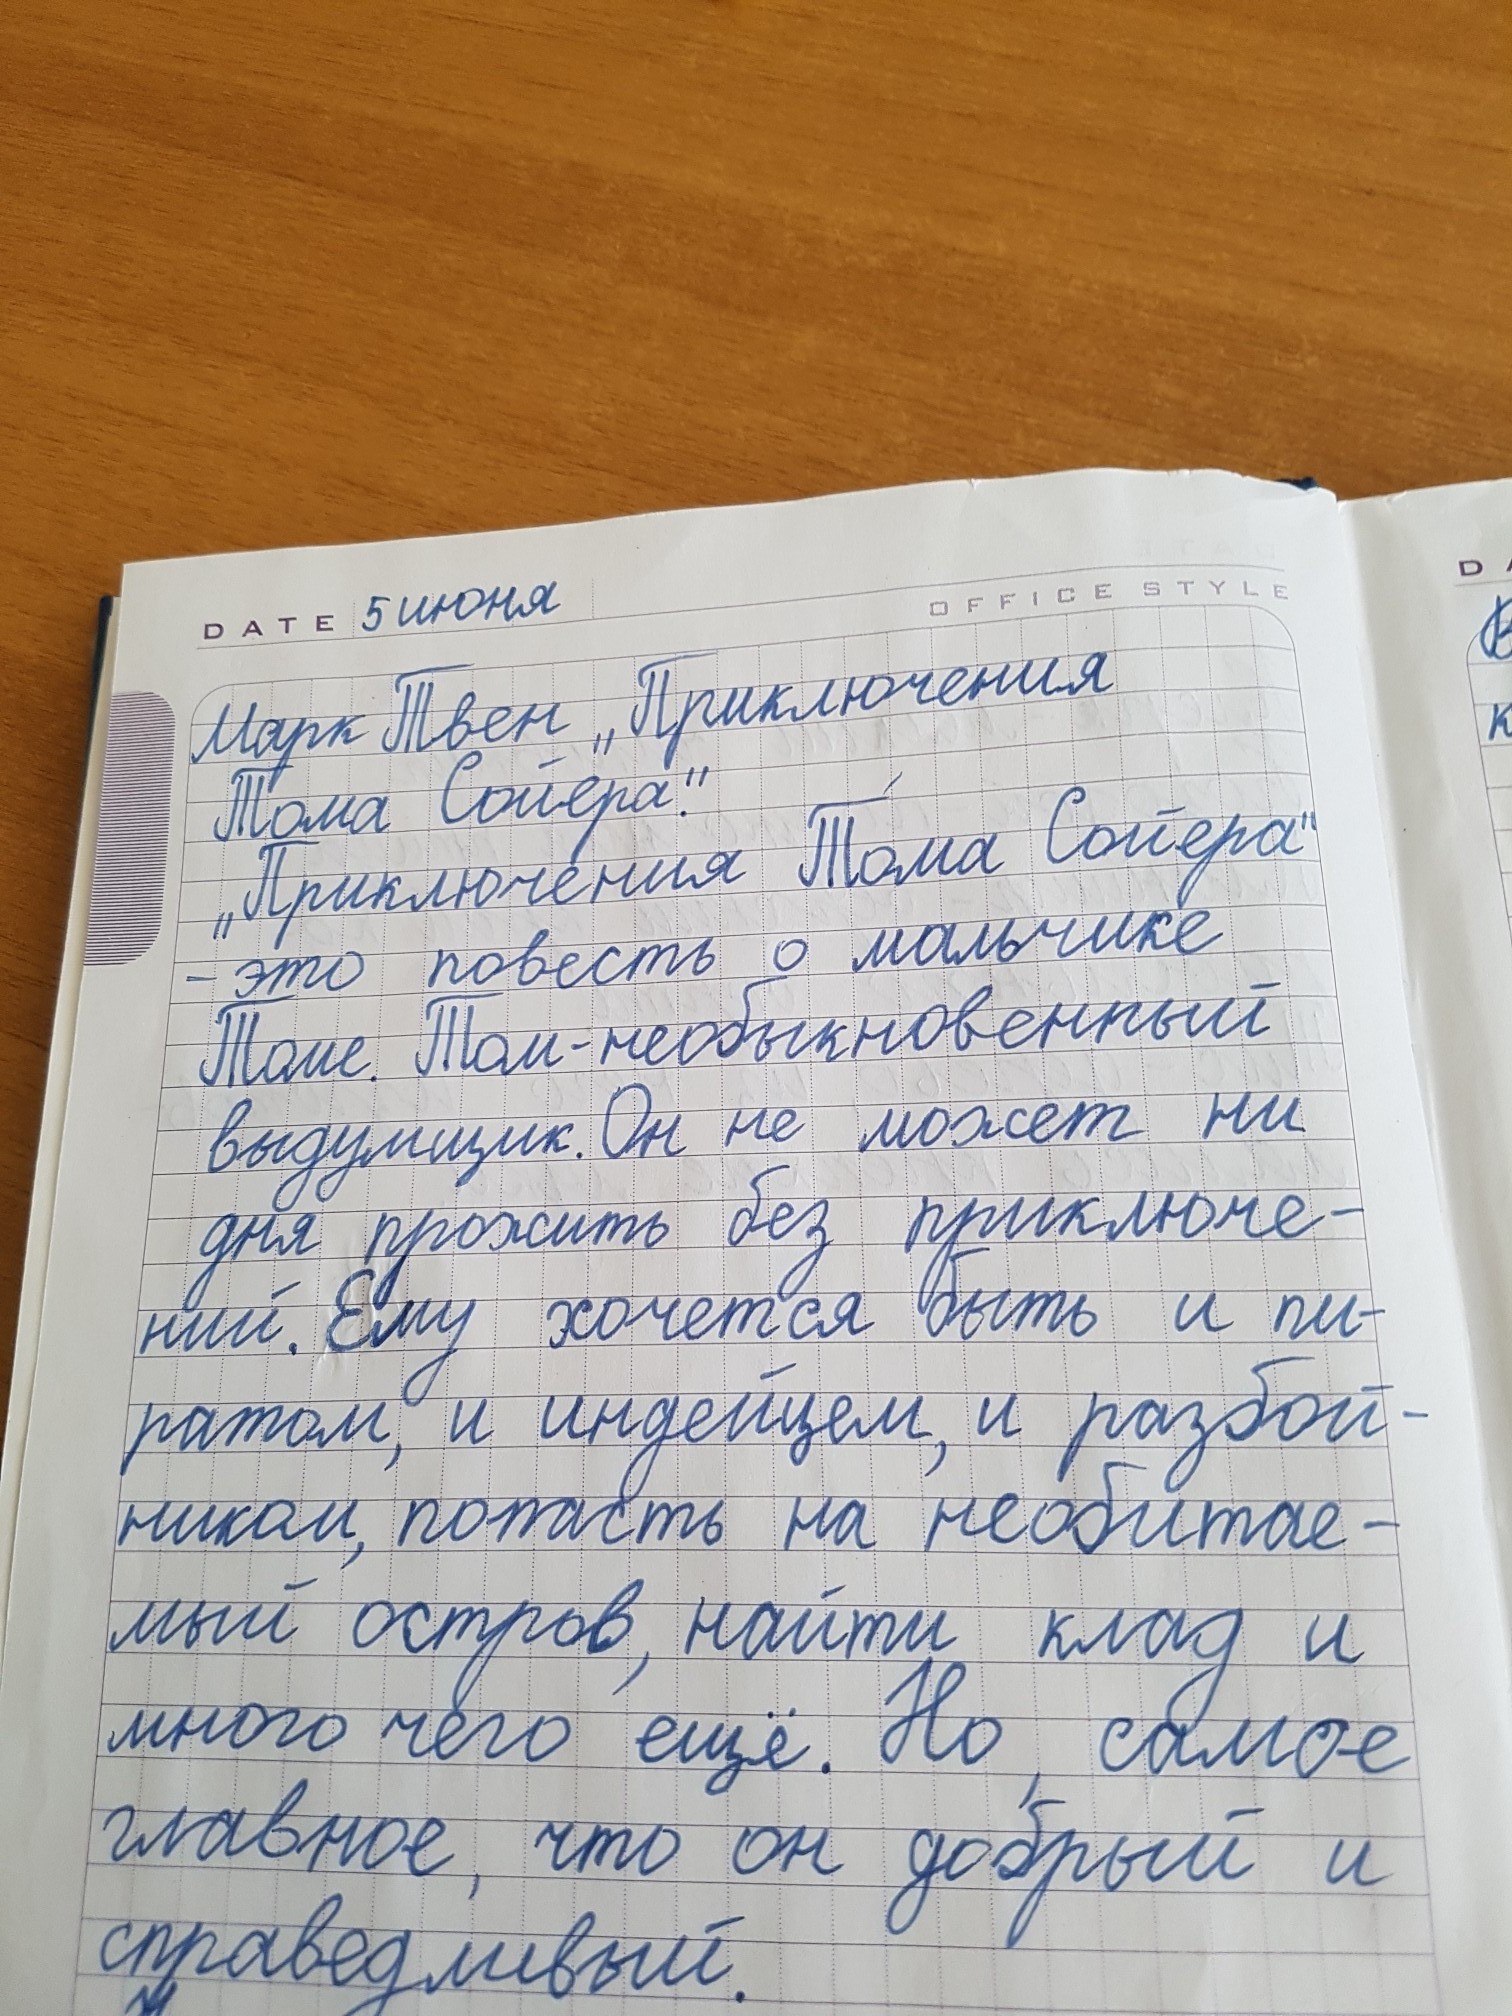 DATE 5 июня
OFFICE STYLE
Марк Твен „Приключения
Тома Сойера."
„Приключения Тома Сойера"
- это повесть о мальчике
Томе. Том-необыкновенный
выдумщик. Он не может ни
дня прожить без приключе-
ний. Ему хочется быть и пи-
ратом, и индейцем, и разбой-
ником, попасть на необитае-
мый остров, найти клад и
много чего ещё. Но, самое
главное, что он добрый и
справедливый.